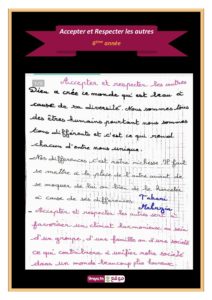 Accepter et Respecter les autres
6ème année
Accepter et respecter les autres
Dieu a créé ce monde qui est beau à
cause de sa diversité. Nous sommes tous
des êtres humains pourtant nous sommes
tous différents et c'est ce qui rend
chacun d'entre nous unique.
- Nos différences, c'est notre richesse. Il faut
se mettre à la place de l'autre avant de
se moquer de lui ou bien de le harceler
à cause de ses différences. Tahani
Mehrzia
- Accepter et respecter les autres sert à
favoriser un climat harmonieux au sein
d'un groupe, d'une famille ou d'une société
ce qui contribuera à unifier notre société
dans un monde beaucoup plus heureux.